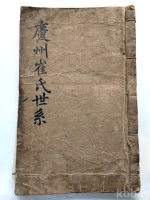 慶州崔氏世系